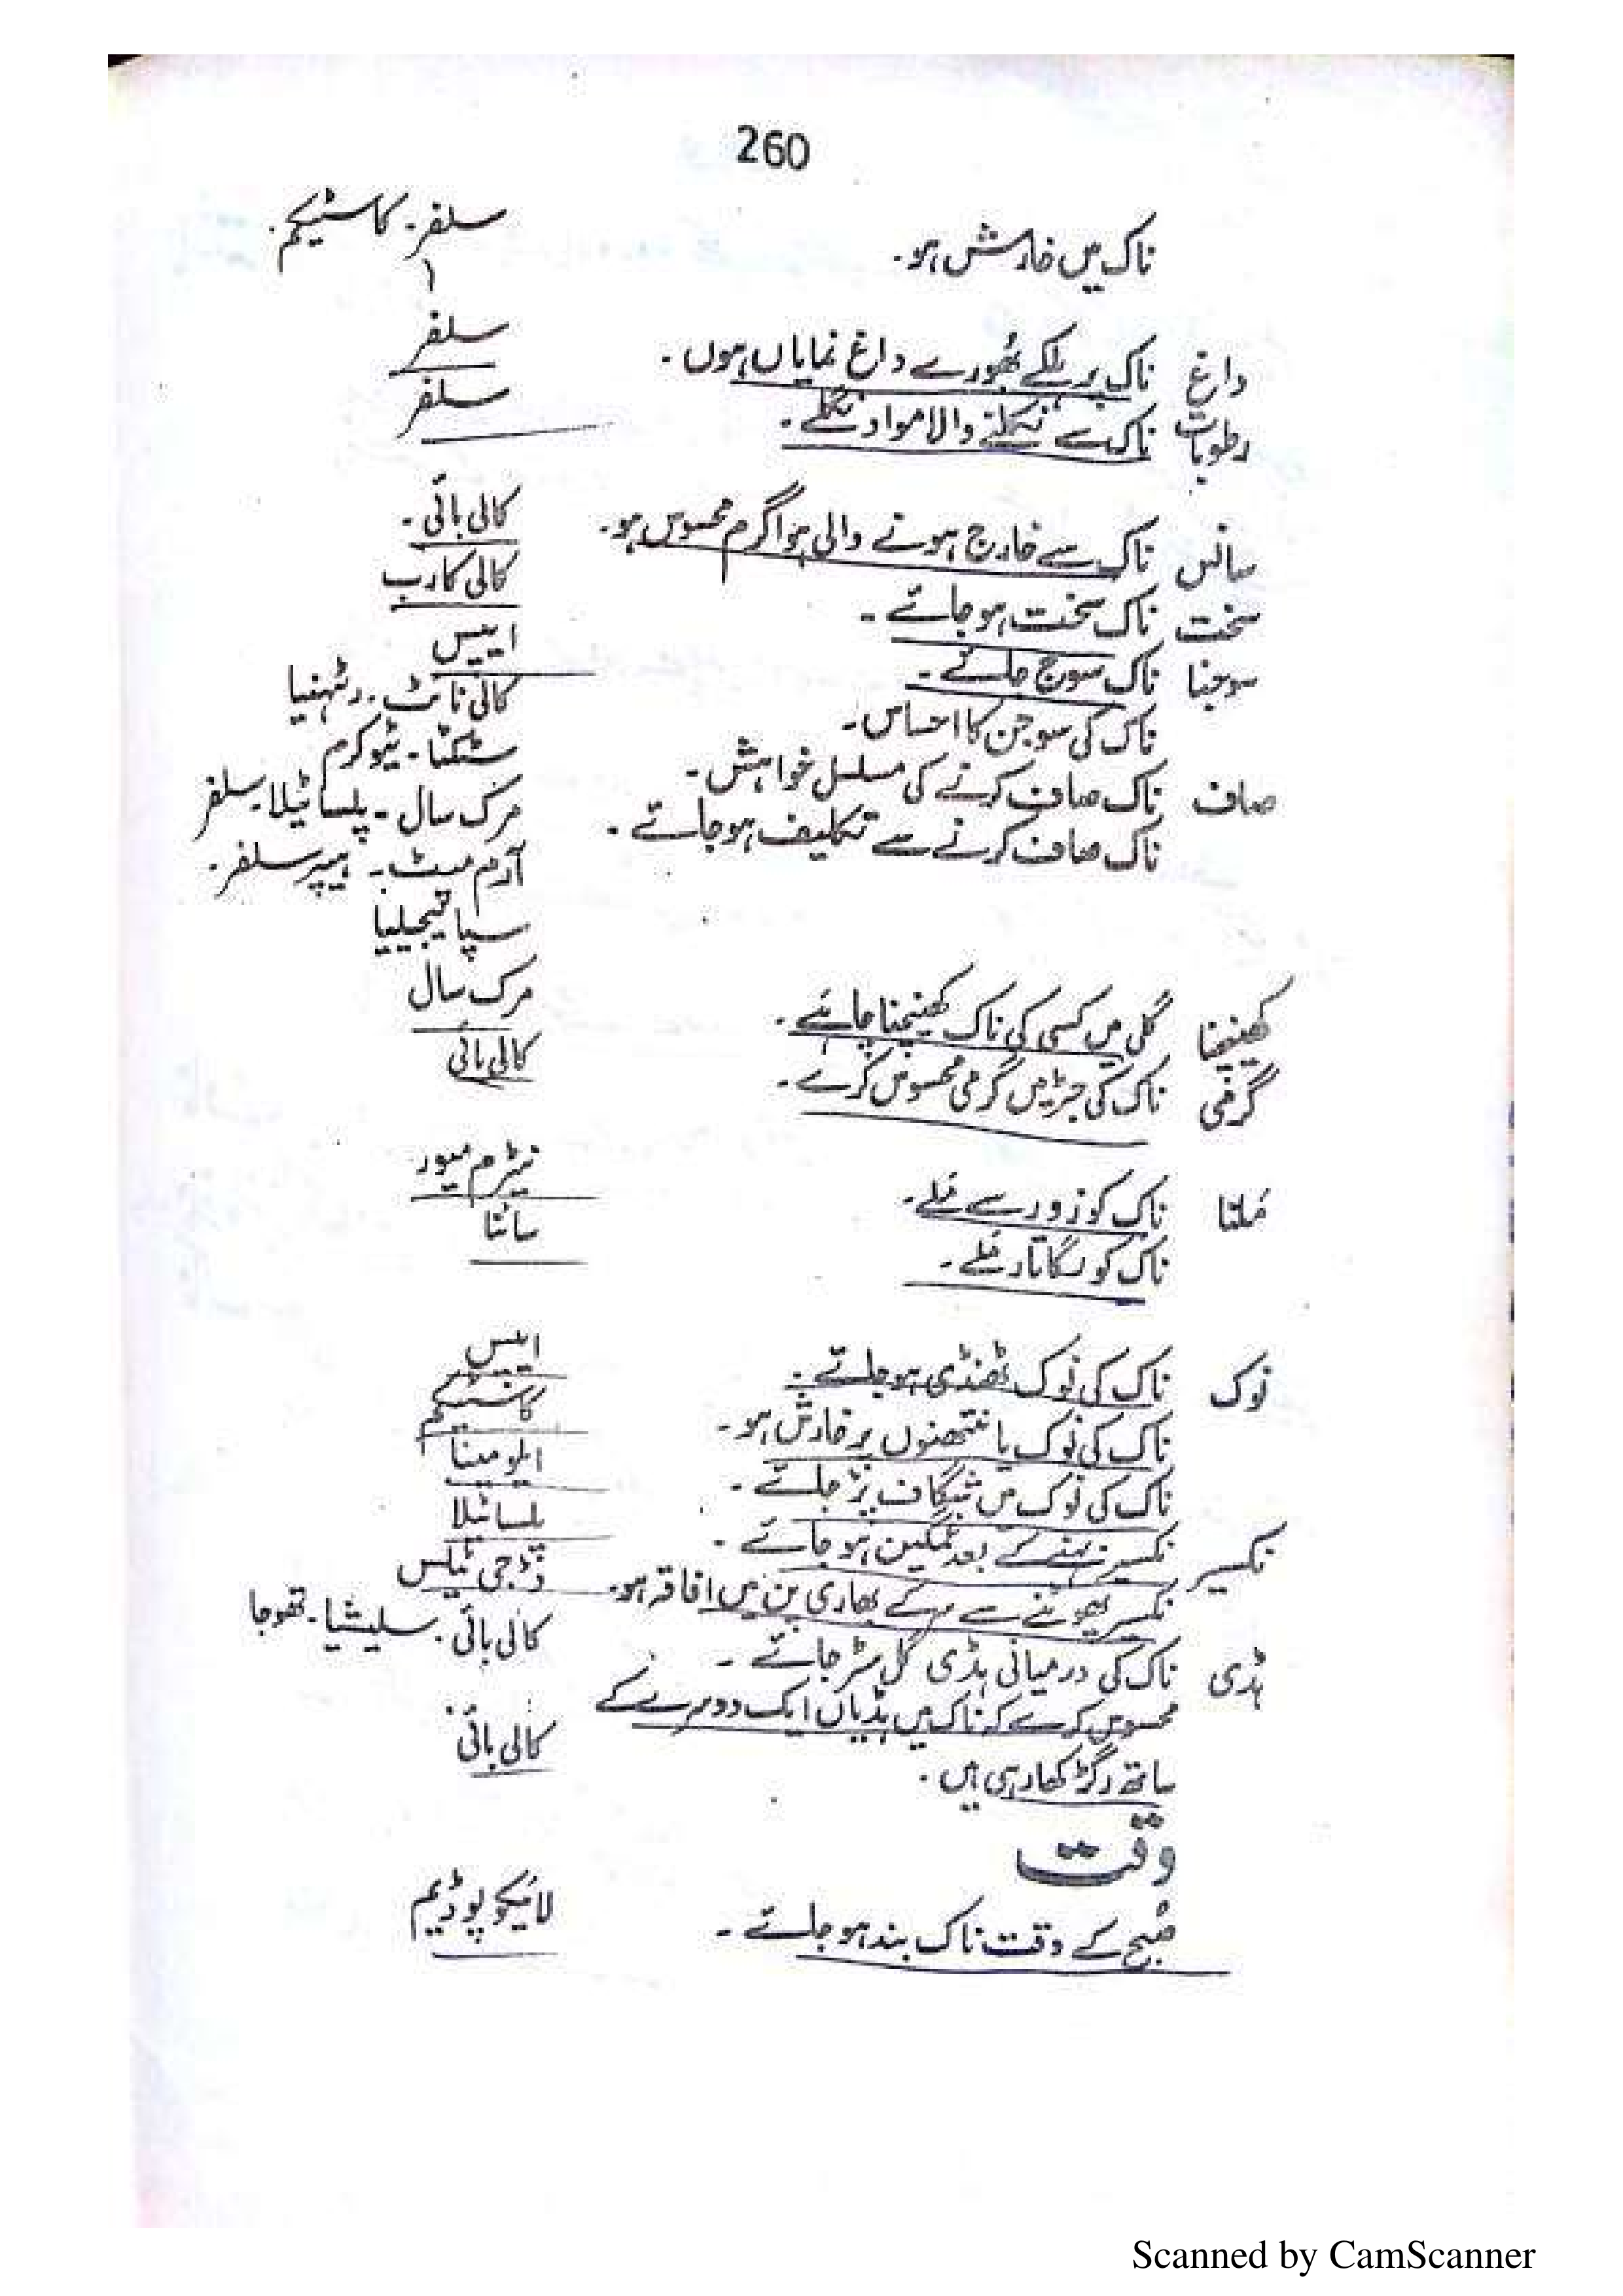 260
ناک میں خارش ہو۔ سلفر۔ کاسٹیکم۔
داغ ناک پر ہلکے بھورے داغ نمایاں ہوں۔ سلفر
رطوبات ناک سے نکلنے والا مواد نگلے۔ سلفر
سانس ناک سے خارج ہونے والی ہوا گرم محسوس ہو۔ کالی بائی۔
سخت ناک سخت ہو جائے۔ کالی کارب
سوجنا ناک سوج جائے۔ ایپس
ناک کی سوجن کا احساس۔ کالی نائٹ۔ رٹہنیا
صاف ناک صاف کرنے کی مسلسل خواہش۔ سٹکٹا۔ ٹیوکرم
ناک صاف کرنے سے تکلیف ہو جائے۔ مرک سال۔ پلساٹیلا۔ سلفر
آرم میٹ۔ ہیپر سلفر۔
سپائیجیلیا
کھینچنا گلی میں کسی کی ناک کھینچنا چاہے۔ مرک سال
گرمی ناک کی جڑ میں گرمی محسوس کرے۔ کالی بائی
مَلنا ناک کو زور سے مَلے۔ نیٹرم میور
ناک کو لگاتار مَلے۔ سائنا
نوک ناک کی نوک ٹھنڈی ہو جائے۔ ایپس
ناک کی نوک یا نتھنوں پر خارش ہو۔ کاسٹیکم
ناک کی نوک میں شگاف پڑ جائے۔ ایلومینا
نکسیر نکسیر بہنے کے بعد غمگین ہو جائے۔ پلساٹیلا
نکسیر پھوٹنے سے سر کے بھاری پن میں افاقہ ہو۔ ڈجی ٹیلس
ہڈی ناک کی درمیانی ہڈی گل سڑ جائے۔ کالی بائی۔ سلیشیا۔ تھوجا
محسوس کرے کہ ناک میں ہڈیاں ایک دوسرے کے
ساتھ رگڑ کھا رہی ہیں۔ کالی بائی
وقت
صبح کے وقت ناک بند ہو جائے۔ لائیکوپوڈیم
Scanned by CamScanner